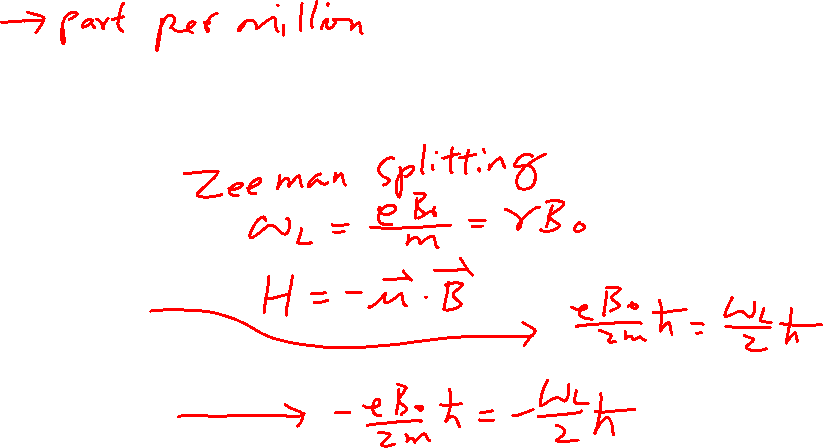 → part per million
Zeeman splitting
ω_L = eB₀/m = γB₀
H = -μ⃗ · B⃗
→ eB₀/2m ħ = ω_L/2 ħ
→ -eB₀/2m ħ = -ω_L/2 ħ